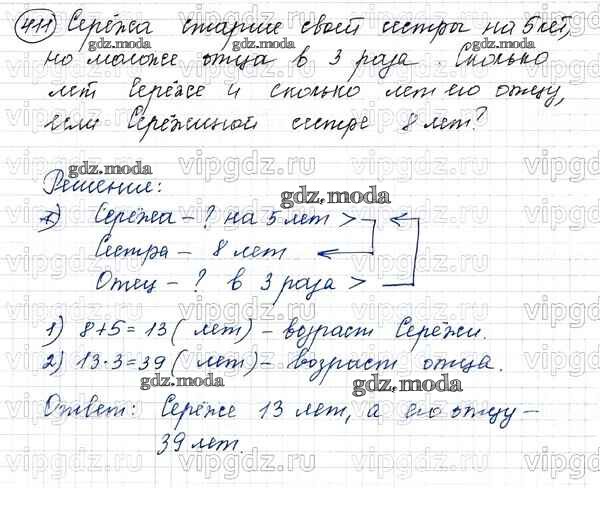 411 Серёжа старше своей сестры на 5 лет,
но моложе отца в 3 раза. Сколько
лет Серёже и сколько лет его отцу,
если Серёжиной сестре 8 лет?
Решение:
Серёжа - ? на 5 лет >
Сестра - 8 лет
Отец - ? в 3 раза >
1) 8+5=13 (лет) - возраст Серёжи.
2) 13·3=39 (лет) - возраст отца.
Ответ: Серёже 13 лет, а его отцу -
39 лет.
gdz.moda
vipgdz.ru